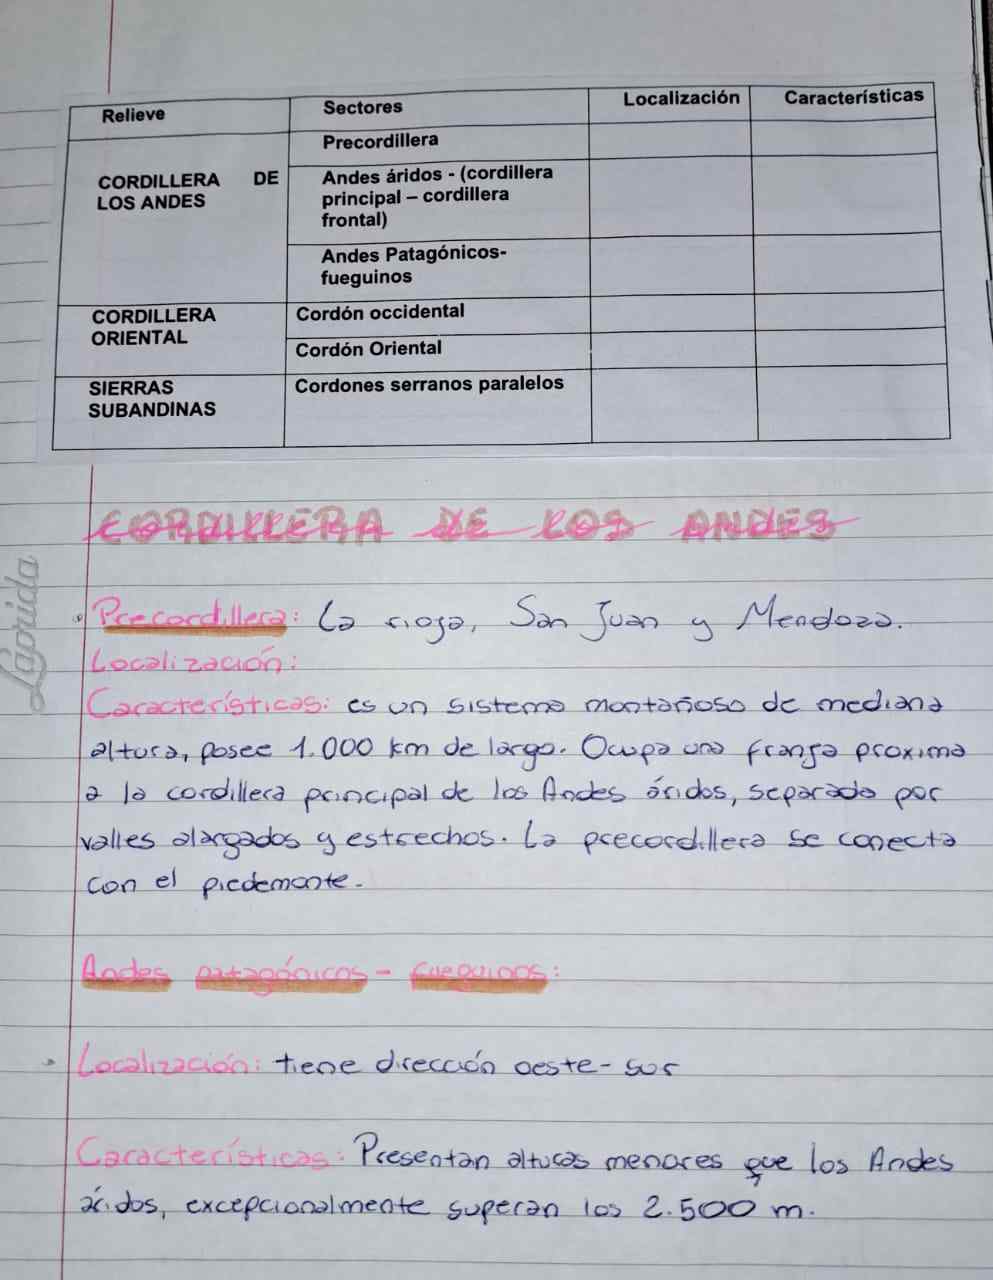 Relieve Sectores Localización Características
Precordillera
CORDILLERA DE LOS ANDES
Andes áridos - (cordillera
principal – cordillera
frontal)
Andes Patagónicos-
fueguinos
CORDILLERA
ORIENTAL
Cordón occidental
Cordón Oriental
SIERRAS
SUBANDINAS
Cordones serranos paralelos
CORDILLERA DE LOS ANDES
Laprida
Precordillera: La rioja, San Juan y Mendoza.
Localización:
Características: es un sistema montañoso de mediana
altura, posee 1.000 km de largo. Ocupa una franja proxima
a la cordillera principal de los Andes áridos, separada por
valles alargados y estrechos. La precordillera se conecta
con el piedemonte.
Andes patagónicos - fueguinos:
Localización: tiene dirección oeste-sur
Características: Presentan alturas menores que los Andes
áridos, excepcionalmente superan los 2.500 m.